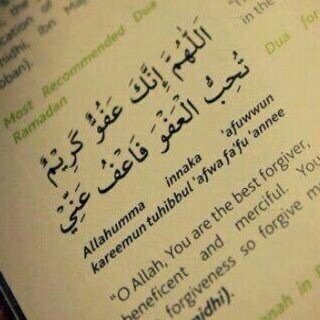 in the
cation of
midhi. Ibn Maj
bban].
Most Recommended Dua
Ramadan
Dua for
اَللّٰهُمَّ إِنَّكَ عَفُوٌّ كَرِيْمٌ
تُحِبُّ الْعَفْوَ فَاعْفُ عَنِّيْ
Allahumma innaka 'afuwwun
kareemun tuhibbul 'afwa fa'fu 'annee
"O Allah, You are the best forgiver,
beneficent and merciful. You
forgiveness so forgive me
midhi].